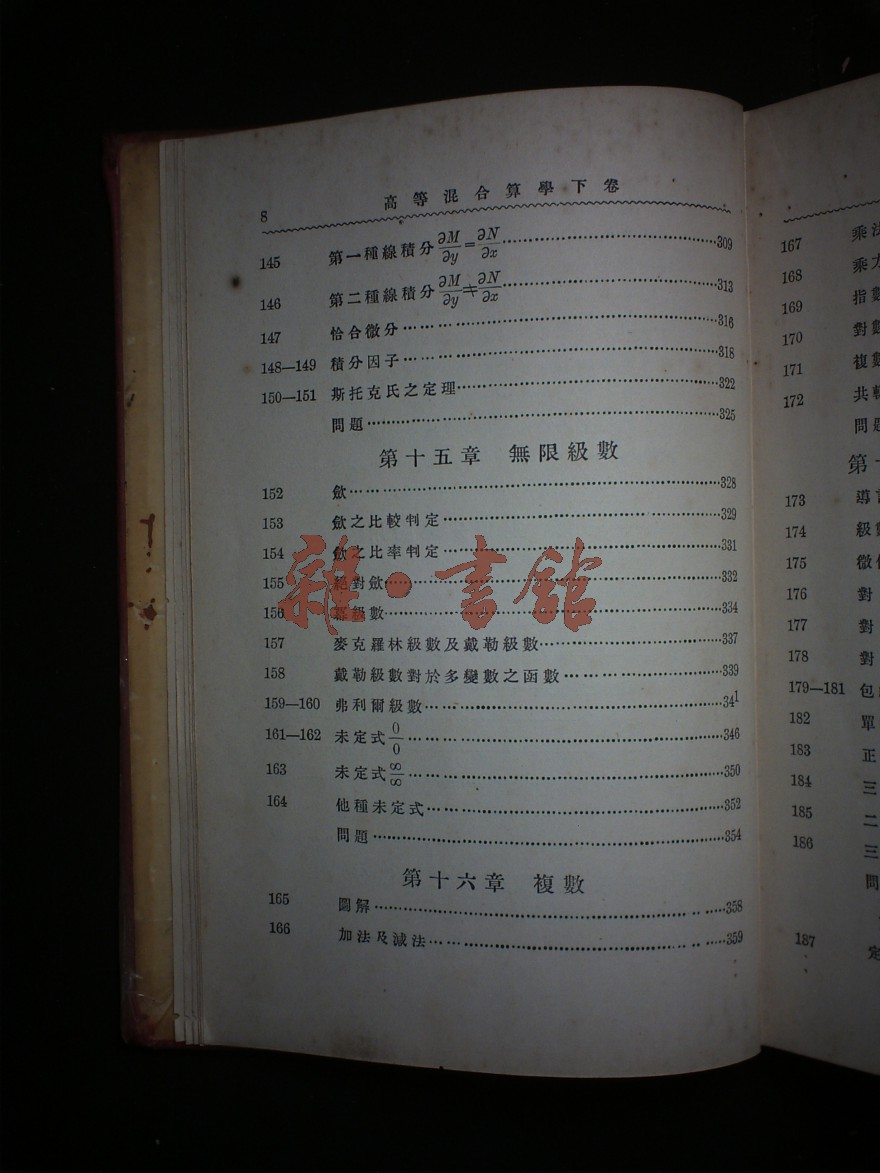 8 高等混合算學下卷
145 第一種線積分 ∂M/∂y = ∂N/∂x ……309
146 第二種線積分 ∂M/∂y ≠ ∂N/∂x ……313
147 恰合微分……316
148—149 積分因子……318
150—151 斯托克氏之定理……322
問題……325
第十五章 無限級數
152 斂……328
153 斂之比較判定……329
154 斂之比率判定……331
155 絕對斂……332
156 冪級數……334
157 麥克羅林級數及戴勒級數……337
158 戴勒級數對於多變數之函數……339
159—160 弗利爾級數……341
161—162 未定式 0/0 ……346
163 未定式 ∞/∞ ……350
164 他種未定式……352
問題……354
第十六章 複數
165 圖解……358
166 加法及減法……359
雜·書館
167 乘法
168 乘方
169 指數
170 對數
171 複數
172 共軛
問題
第十
173 導
174 級數
175 微
176 對
177 對
178 對
179—181 包
182 單
183 正
184 三
185 二
186 三
問
187 定